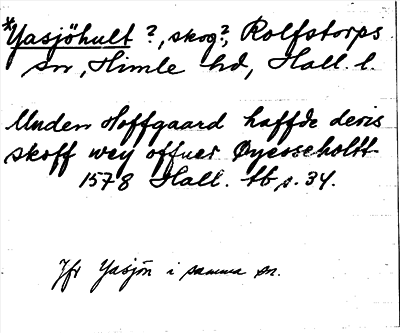 *Yasjöhult ?, skog?, Rolfstorps
sn, Himle hd, Hall. l.
Unden Hoffgaard haffde deris
skoff wey offuer Øyesseholtt
1578 Hall. tb s. 34.
Jfr Yasjön i samma sn.